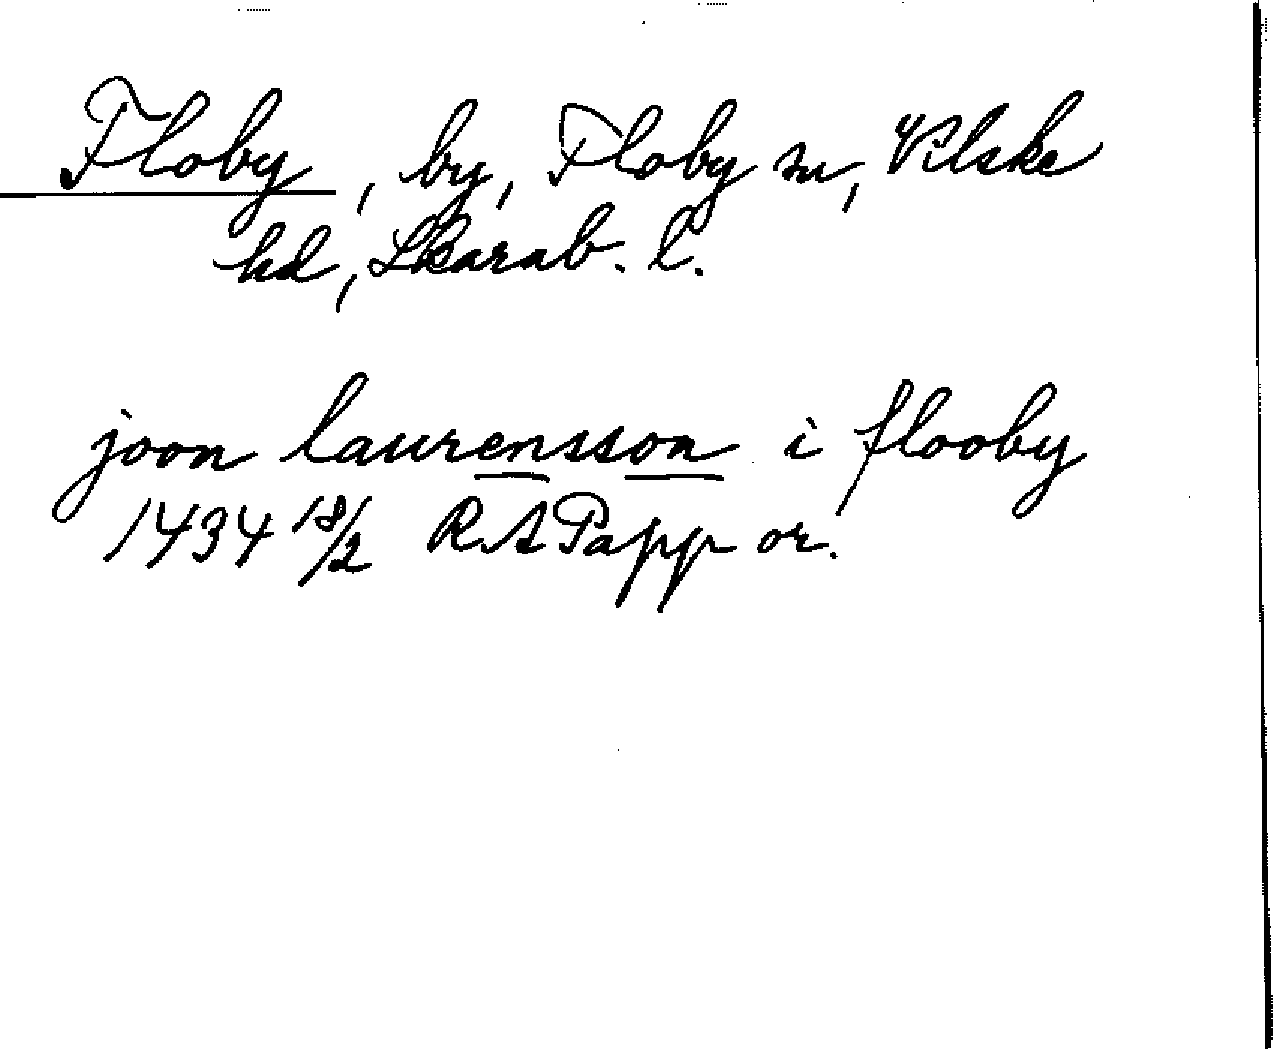 Floby, by, Floby sn, Vilske
hd, Skarab. l.
joon laurensson i flooby
1434 18/2 RAPapp or.